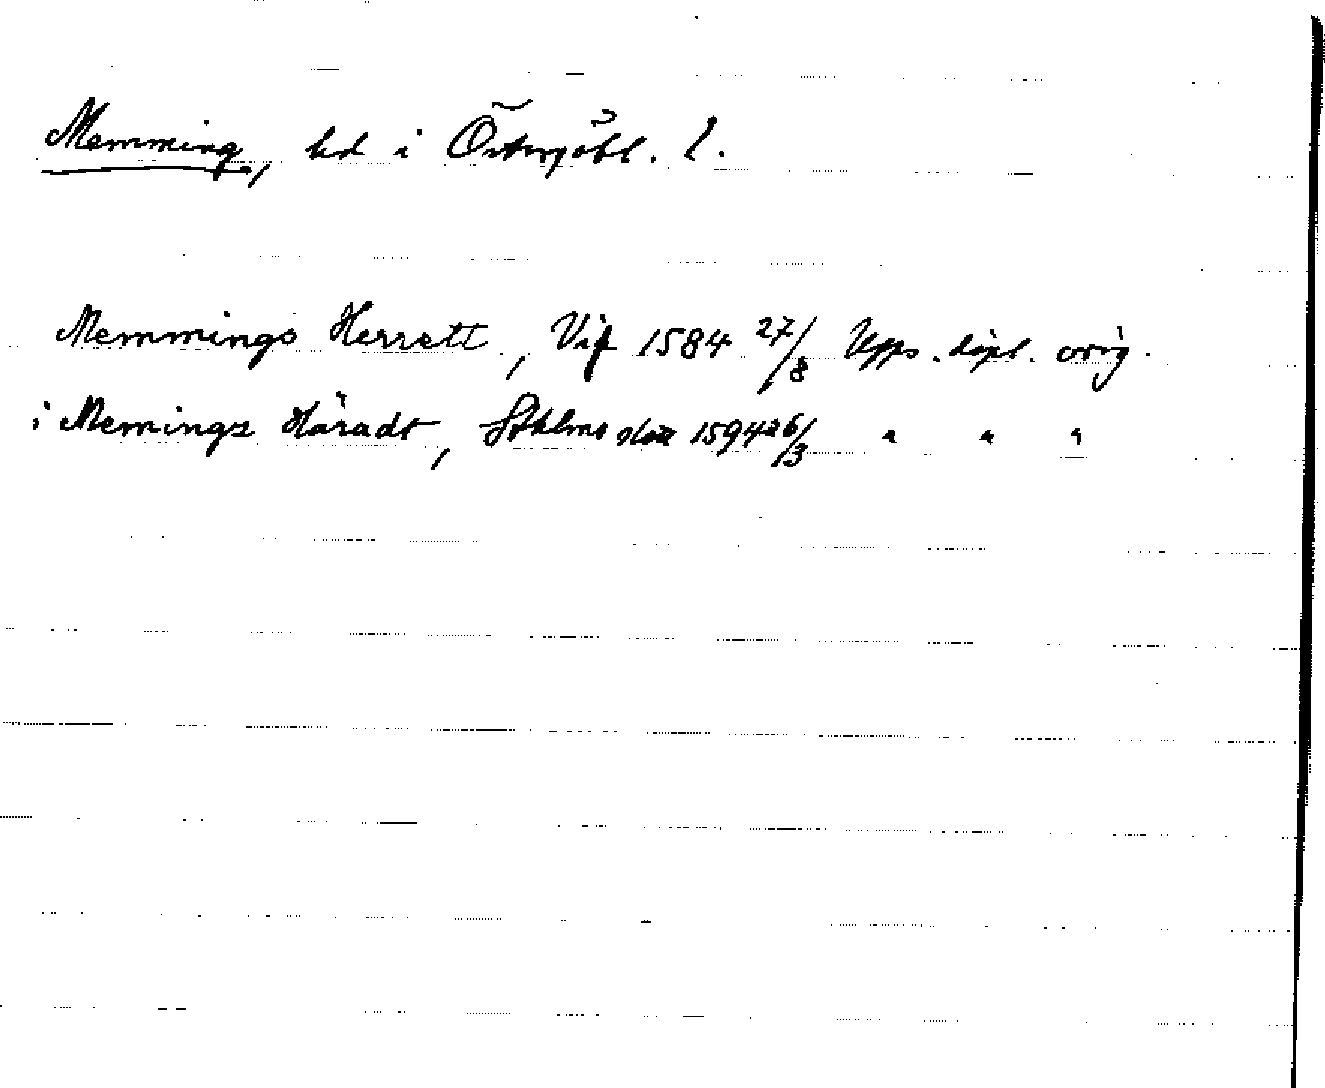 Memming, hd i Östergötl. l.
Memmings Herrett, Vif 1584 27/8 Upps. dipl. orig.
i Memings Häradt, Sthlms slott 1594 26/3 " " "